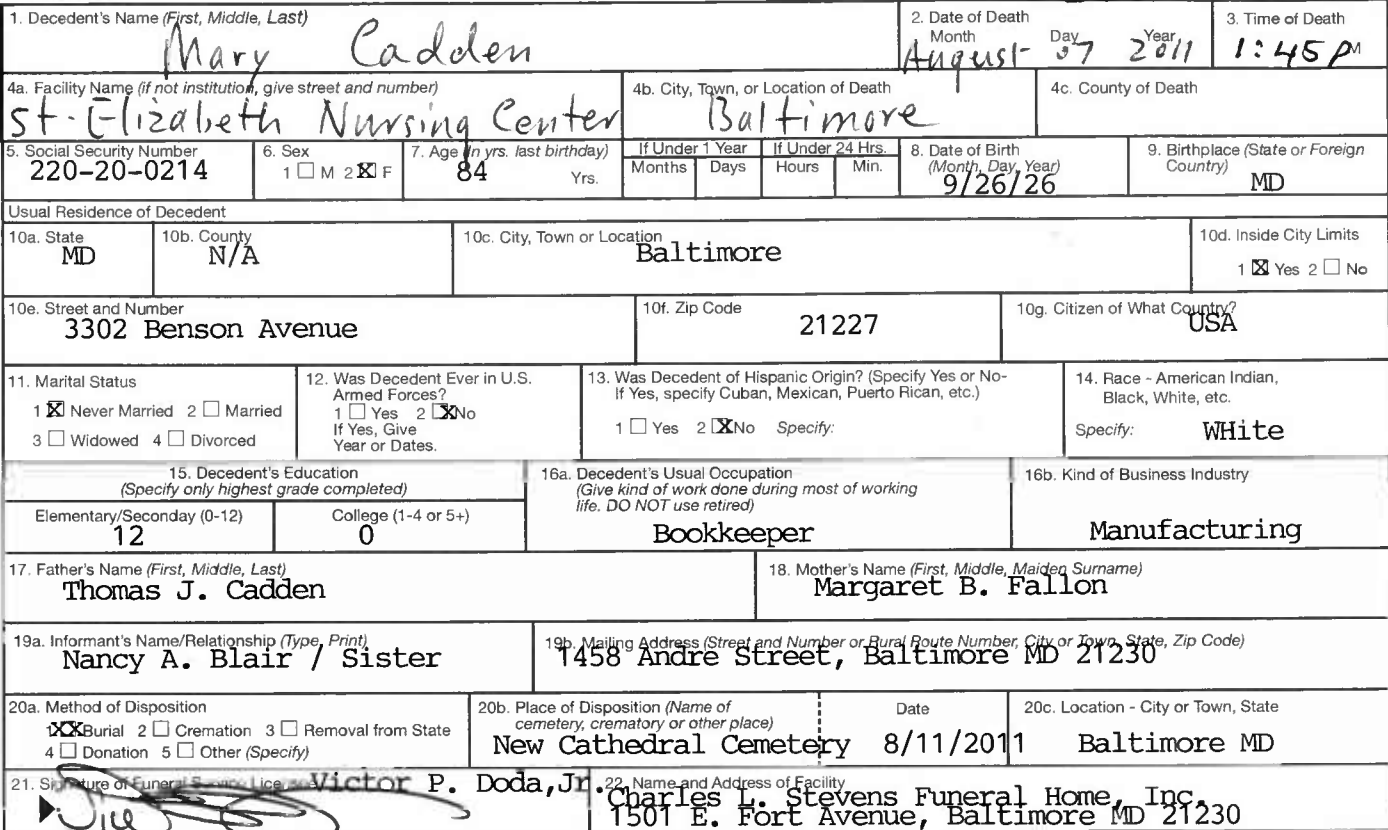 1. Decedent's Name (First, Middle, Last)
Mary Cadden
2. Date of Death
Month Day Year
August 07 2011
3. Time of Death
1:45 PM
4a. Facility Name (if not institution, give street and number)
St. Elizabeth Nursing Center
4b. City, Town, or Location of Death
Baltimore
4c. County of Death
5. Social Security Number
220-20-0214
6. Sex
1 ☐ M 2 ☒ F
7. Age (In yrs. last birthday)
84 Yrs.
If Under 1 Year
Months Days
If Under 24 Hrs.
Hours Min.
8. Date of Birth
(Month, Day, Year)
9/26/26
9. Birthplace (State or Foreign
Country)
MD
Usual Residence of Decedent
10a. State
MD
10b. County
N/A
10c. City, Town or Location
Baltimore
10d. Inside City Limits
1 ☒ Yes 2 ☐ No
10e. Street and Number
3302 Benson Avenue
10f. Zip Code
21227
10g. Citizen of What Country?
USA
11. Marital Status
1 ☒ Never Married 2 ☐ Married
3 ☐ Widowed 4 ☐ Divorced
12. Was Decedent Ever in U.S.
Armed Forces?
1 ☐ Yes 2 ☒ No
If Yes, Give
Year or Dates.
13. Was Decedent of Hispanic Origin? (Specify Yes or No-
If Yes, specify Cuban, Mexican, Puerto Rican, etc.)
1 ☐ Yes 2 ☒ No Specify:
14. Race - American Indian,
Black, White, etc.
Specify: WHite
15. Decedent's Education
(Specify only highest grade completed)
Elementary/Seconday (0-12)
12
College (1-4 or 5+)
0
16a. Decedent's Usual Occupation
(Give kind of work done during most of working
life. DO NOT use retired)
Bookkeeper
16b. Kind of Business Industry
Manufacturing
17. Father's Name (First, Middle, Last)
Thomas J. Cadden
18. Mother's Name (First, Middle, Maiden Surname)
Margaret B. Fallon
19a. Informant's Name/Relationship (Type, Print)
Nancy A. Blair / Sister
19b. Mailing Address (Street and Number or Rural Route Number, City or Town, State, Zip Code)
1458 Andre Street, Baltimore MD 21230
20a. Method of Disposition
1 XX Burial 2 ☐ Cremation 3 ☐ Removal from State
4 ☐ Donation 5 ☐ Other (Specify)
20b. Place of Disposition (Name of
cemetery, crematory or other place)
New Cathedral Cemetery
Date
8/11/2011
20c. Location - City or Town, State
Baltimore MD
21. Signature of Funeral Service
Victor P. Doda, Jr.
22. Name and Address of Facility
Charles L. Stevens Funeral Home, Inc.
1501 E. Fort Avenue, Baltimore MD 21230